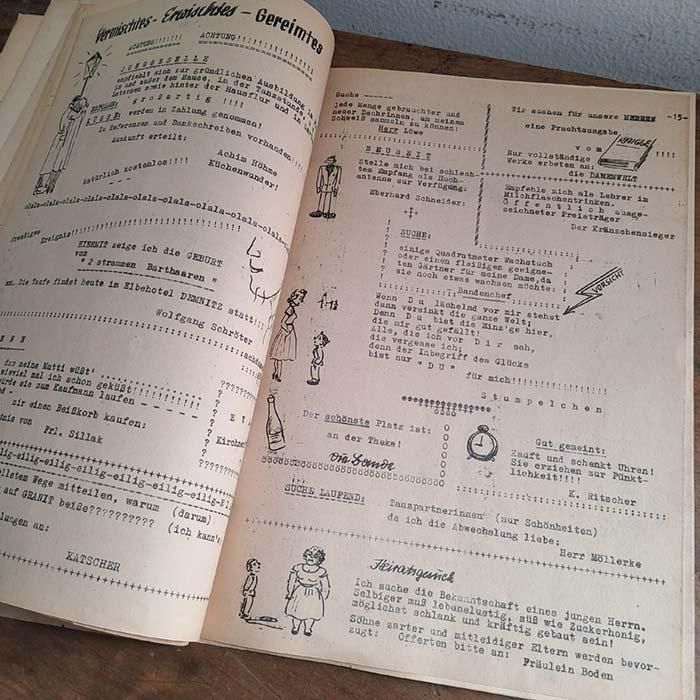 Vermischtes - Erwischtes - Gereimtes
ACHTUNG!!!!! ACHTUNG!!!!!!
JUNGGESELLE
empfiehlt sich zur gründlichen Ausbildung in
in und außer dem Hause, in der Tanzstunde,
Laternen sowie hinter der Hausflur und
großartig !!!!
KÜSSE: werden in Zahlung genommen!
In Referenzen und Dankschreiben vorhanden!!
Auskunft erteilt:
Achim Höhme
Küchenwunder!
Natürlich kostenlos!!!!
olala-olala-olala-olala-olala-olala-olala-olala-olala
Freudiges
Ereignis!!!
HIERMIT zeige ich die GEBURT
von
" 2 strammen Barthaaren "
an. Die Taufe findet heute im Elbehotel DEMNITZ statt!!!
Wolfgang Schröter
das meine Mutti wüßt'
wieviel mal ich schon geküßt!!!!!!!!!!
würde sie zum Kaufmann laufen -
mir einen Beißkorb kaufen:
von Frl. Sillak
eilig-eilig-eilig-eilig-eilig-eilig-eilig
Wege mitteilen, warum (darum)
auf GRANIT beiße?????????? (ich kann's
an:
KATSCHER
Suche
jede Menge gebrauchter und
neuer Dachrinnen, um meinen
Scheiß sammeln zu können!
Herr Löwe
NEUHEIT
Stelle mich bei schlech-
tem Empfang als Hoch-
antenne zur Verfügung.
Eberhard Schneider:
Wir suchen für unsere HERREN
-15-
eine Prachtausgabe
vom KNIGGE !!!!
Nur vollständige
Werke erbeten an:
die DAMENWELT
Empfehle mich als Lehrer im
Milchflaschentrinken.
Öffentlich ausge-
zeichneter Preisträger
Der Kränzchensieger
SUCHE:
einige Quadratmeter Wachstuch
oder einen fleißigen geeigne-
ten Gärtner für meine Dame, da
sie noch etwas wachsen möchte!
Bandenchef
VORSICHT
Wenn Du lächelnd vor mir stehst
dann versinkt die ganze Welt;
Denn Du bist die Einz'ge hier,
die mir gut gefällt!
Alle, die ich vor Dir sah,
die vergesse ich;
denn der Inbegriff des Glücks
bist nur "DU"
für mich!!!!!!!!!!!!!
Stumpelchen
Der schönste Platz ist:
an der Theke!
Die Bande
Gut gemeint:
Kauft und schenkt Uhren!
Sie erziehen zur Pünkt-
lichkeit!!!!
K. Ritscher
SUCHE LAUFEND:
Tanzpartnerinnen (nur Schönheiten)
da ich die Abwechslung liebe:
Herr Möllerke
Heiratsgesuch
Ich suche die Bekanntschaft eines jungen Herrn.
Selbiger muß lebenslustig, süß wie Zuckerhonig,
möglichst schlank und kräftig gebaut sein!
Söhne zarter und mitleidiger Eltern werden bevor-
zugt: Offerten bitte an: Fräulein Boden